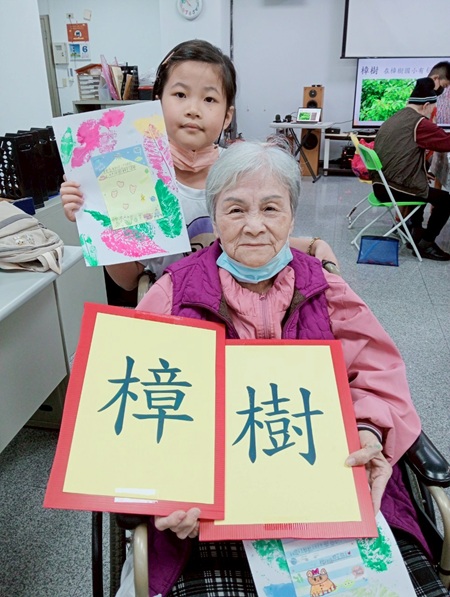 樟樹
樟樹
6